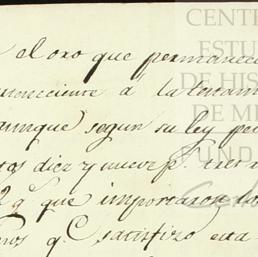 el oro que permanec
eneciente á la testam
aunque segun su ley pe
tos diez y nueve p.
2 q.e que importaron los
ros q.e satisfizo esta
CENT
ESTU
DE HIS
DE M
FUND